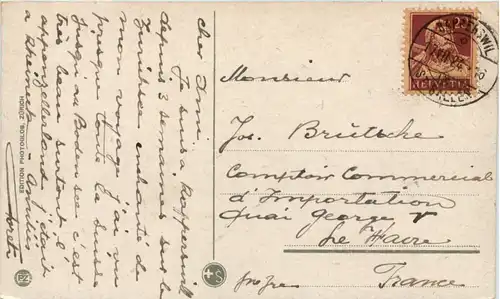 Cher Ami.
Je suis à Rapperswil
depuis 3 semaines sur le
Zurichsee enchantée de
mon voyage j'ai vu
presque toute la Suisse
jusqu'au Bodensee c'est
très beau surtout l'
appenzellerland
Amitiés
EDITION PHOTOGLOB, ZÜRICH
PZ
Monsieur
Jos. Brütsche
Comptoir Commercial
d'Importation
Quai George V
Le Havre
France
RAPPERSWIL
HELVETIA